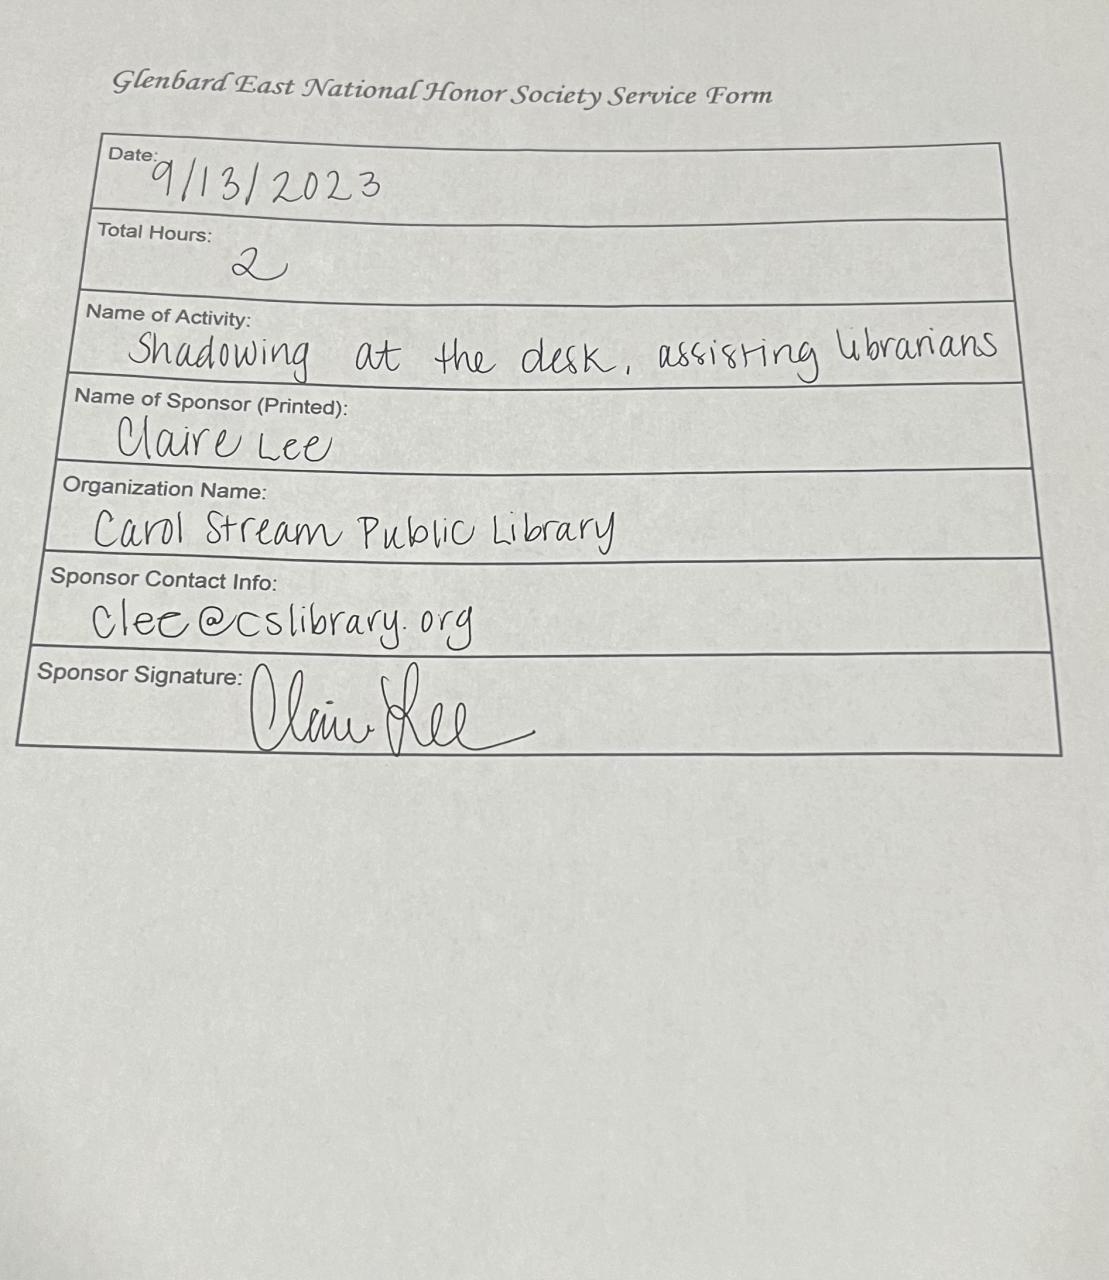 Glenbard East National Honor Society Service Form
Date: 9/13/2023
Total Hours:
2
Name of Activity:
Shadowing at the desk, assisting librarians
Name of Sponsor (Printed):
Claire Lee
Organization Name:
Carol Stream Public Library
Sponsor Contact Info:
clee@cslibrary.org
Sponsor Signature: Claire Lee